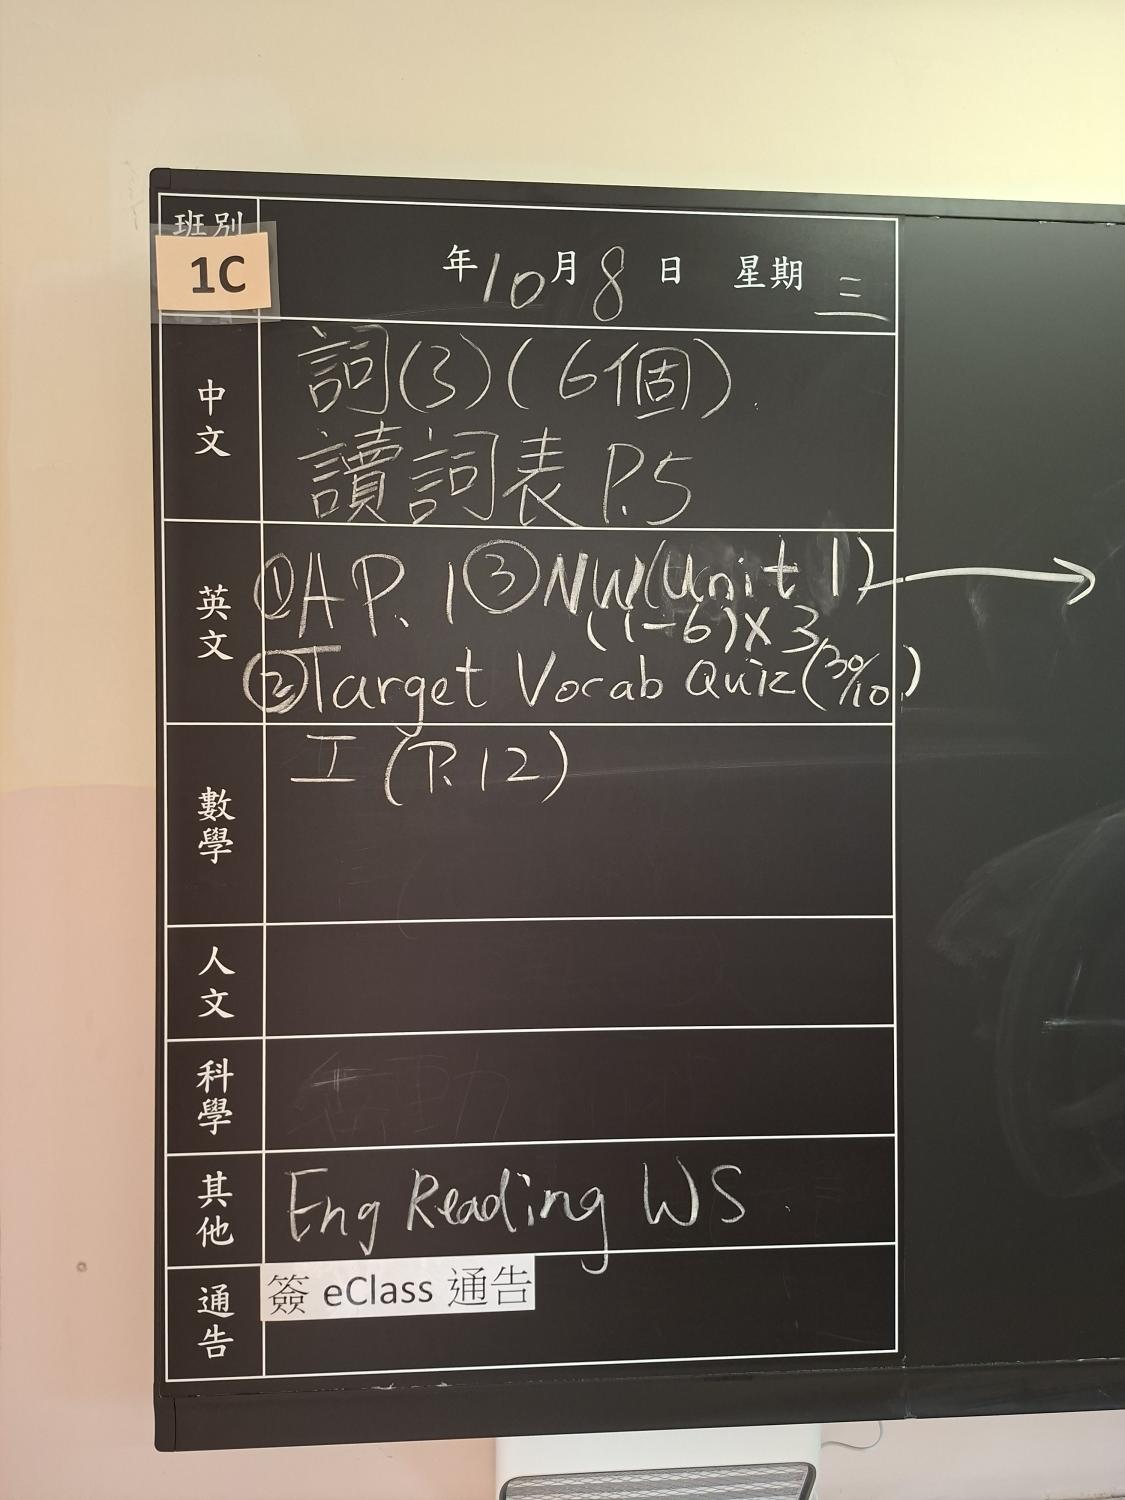 班別
1C
年10月8日 星期三
中文
詞(3)(6個)
讀詞表 P.5
英文
①A P. 1 ③NW(Unit 1)→
(1-6)X3
②Target Vocab Quiz(30/10)
數學
工(P.12)
人文
科學
其他
Eng Reading WS
通告
簽 eClass 通告